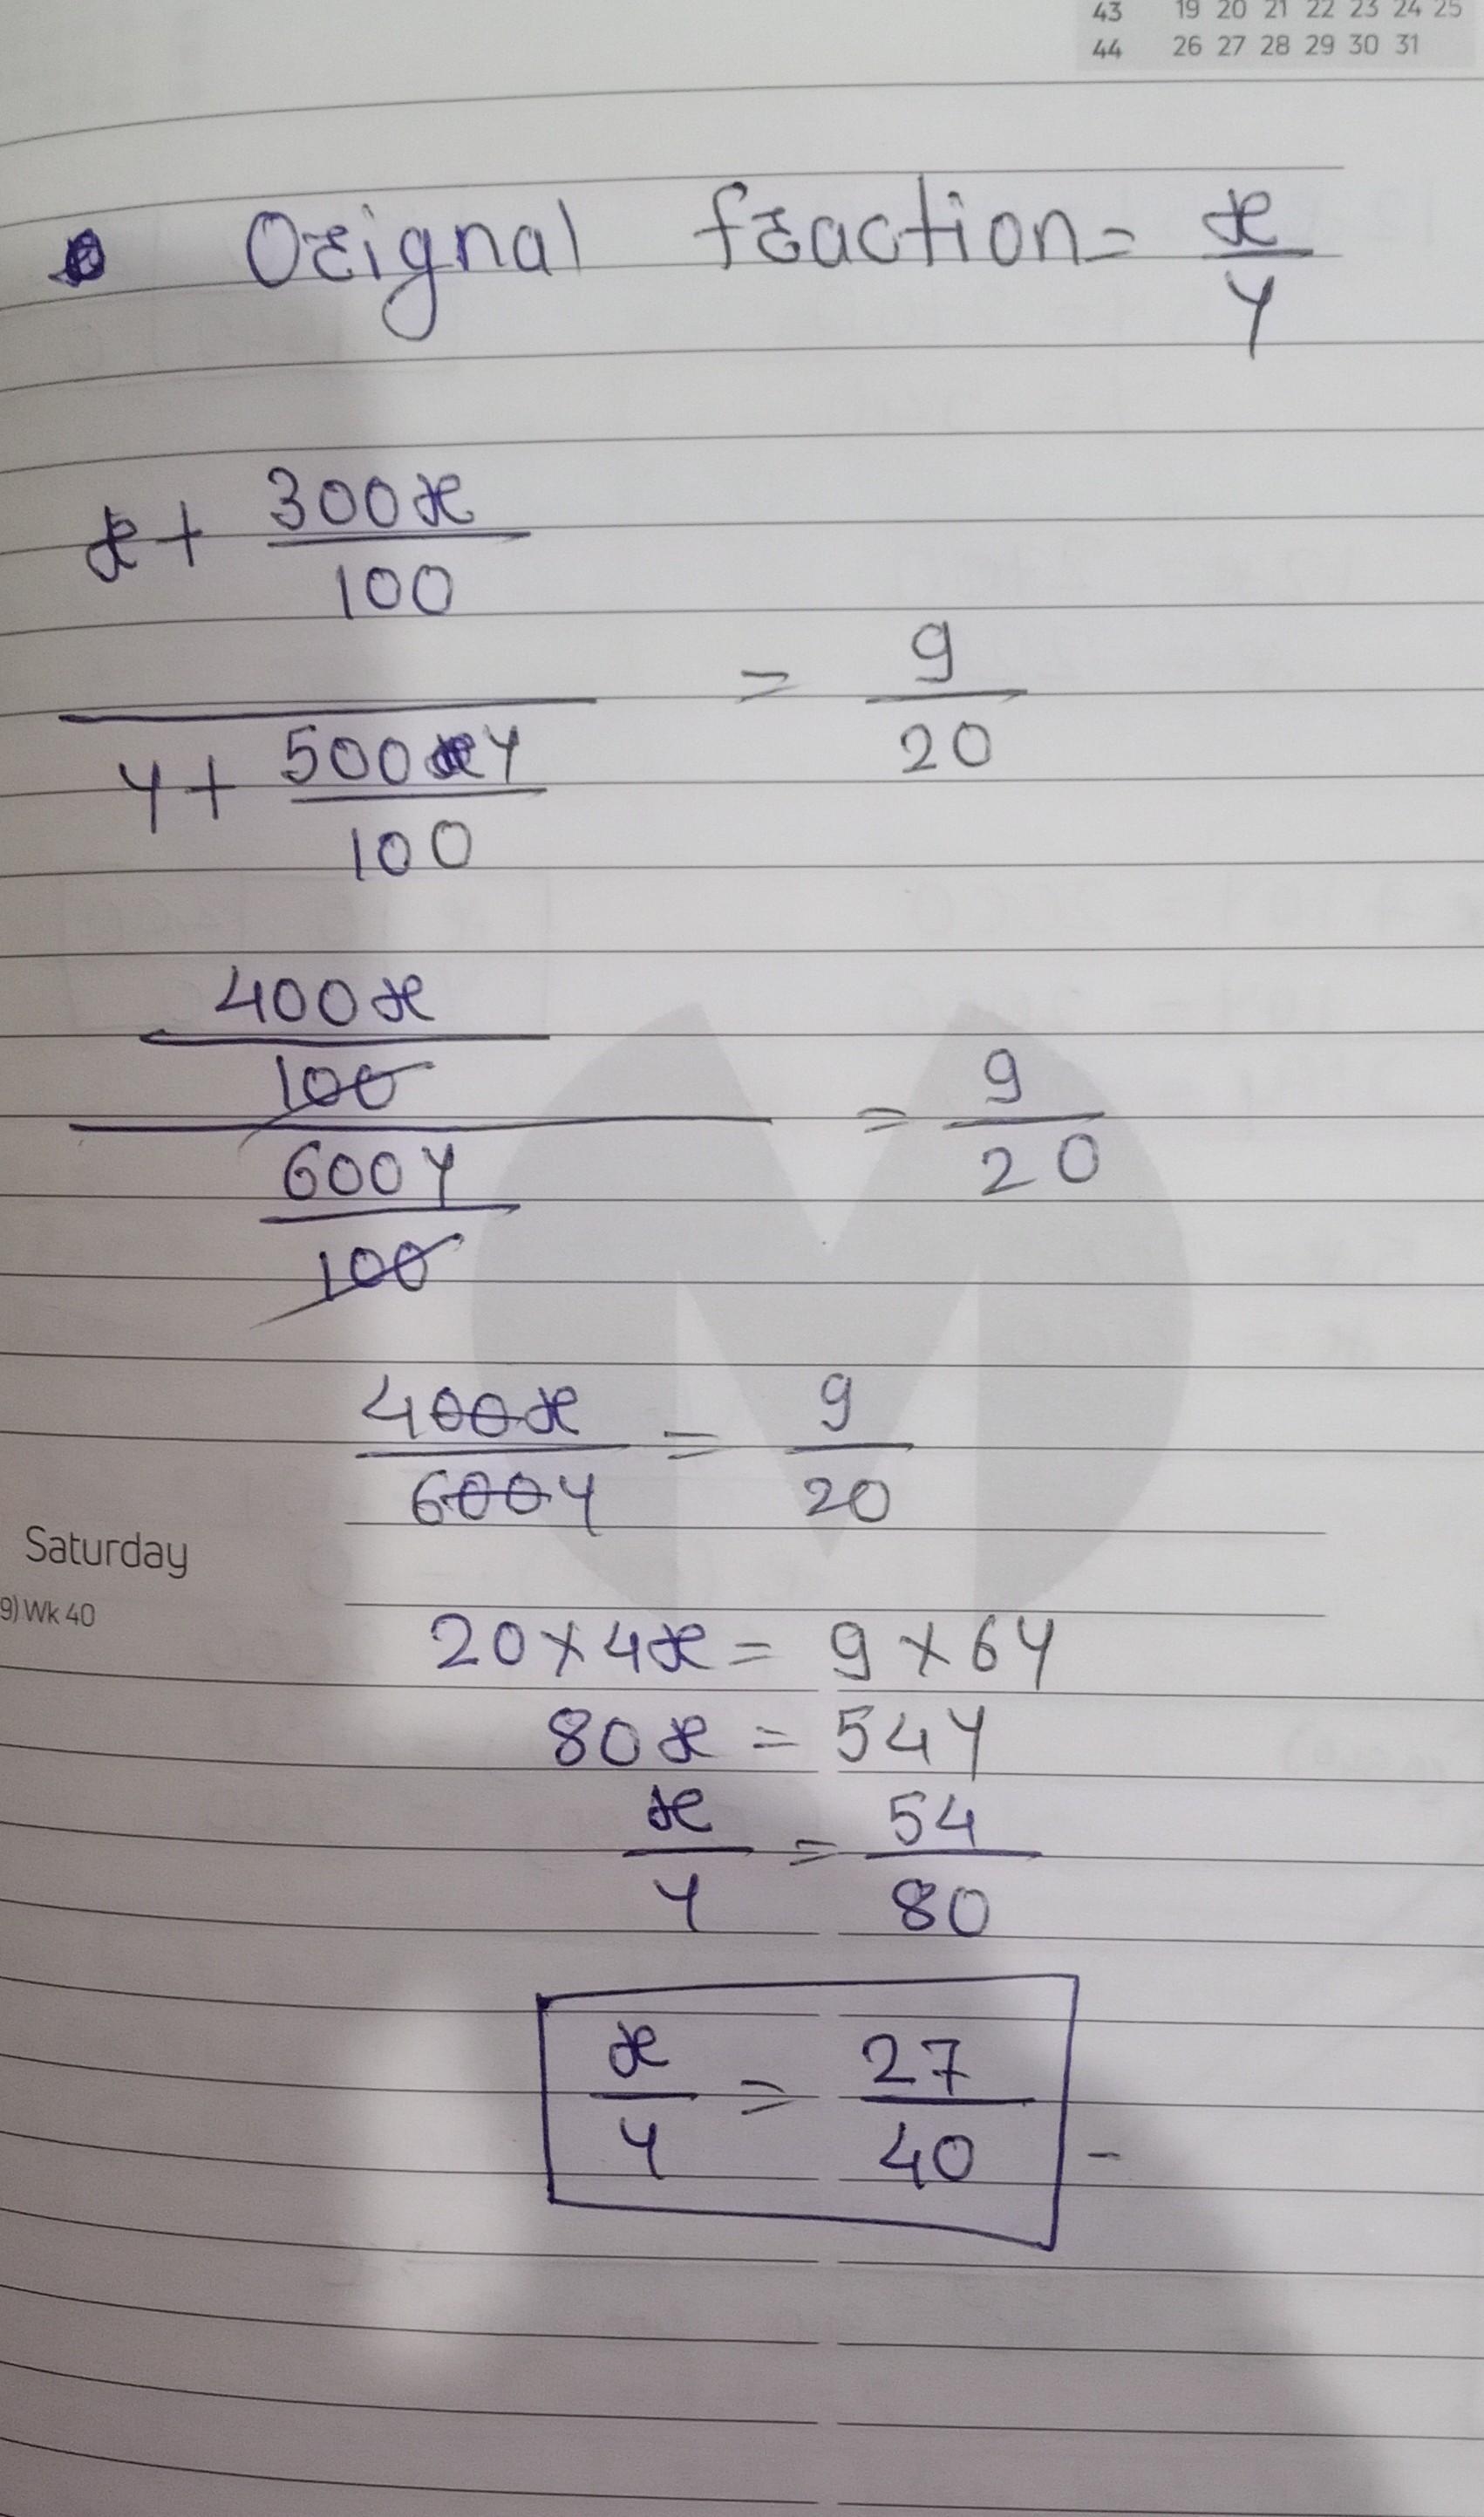 43 19 20 21 22 23 24 25
44 26 27 28 29 30 31
Orignal fraction = x/y
x + 300x/100
= 9/20
y + 500y/100
400x/100
= 9/20
600y/100
400x/600y = 9/20
Saturday
9) Wk 40
20 × 4x = 9 × 6y
80x = 54y
x/y = 54/80
x/y = 27/40 -